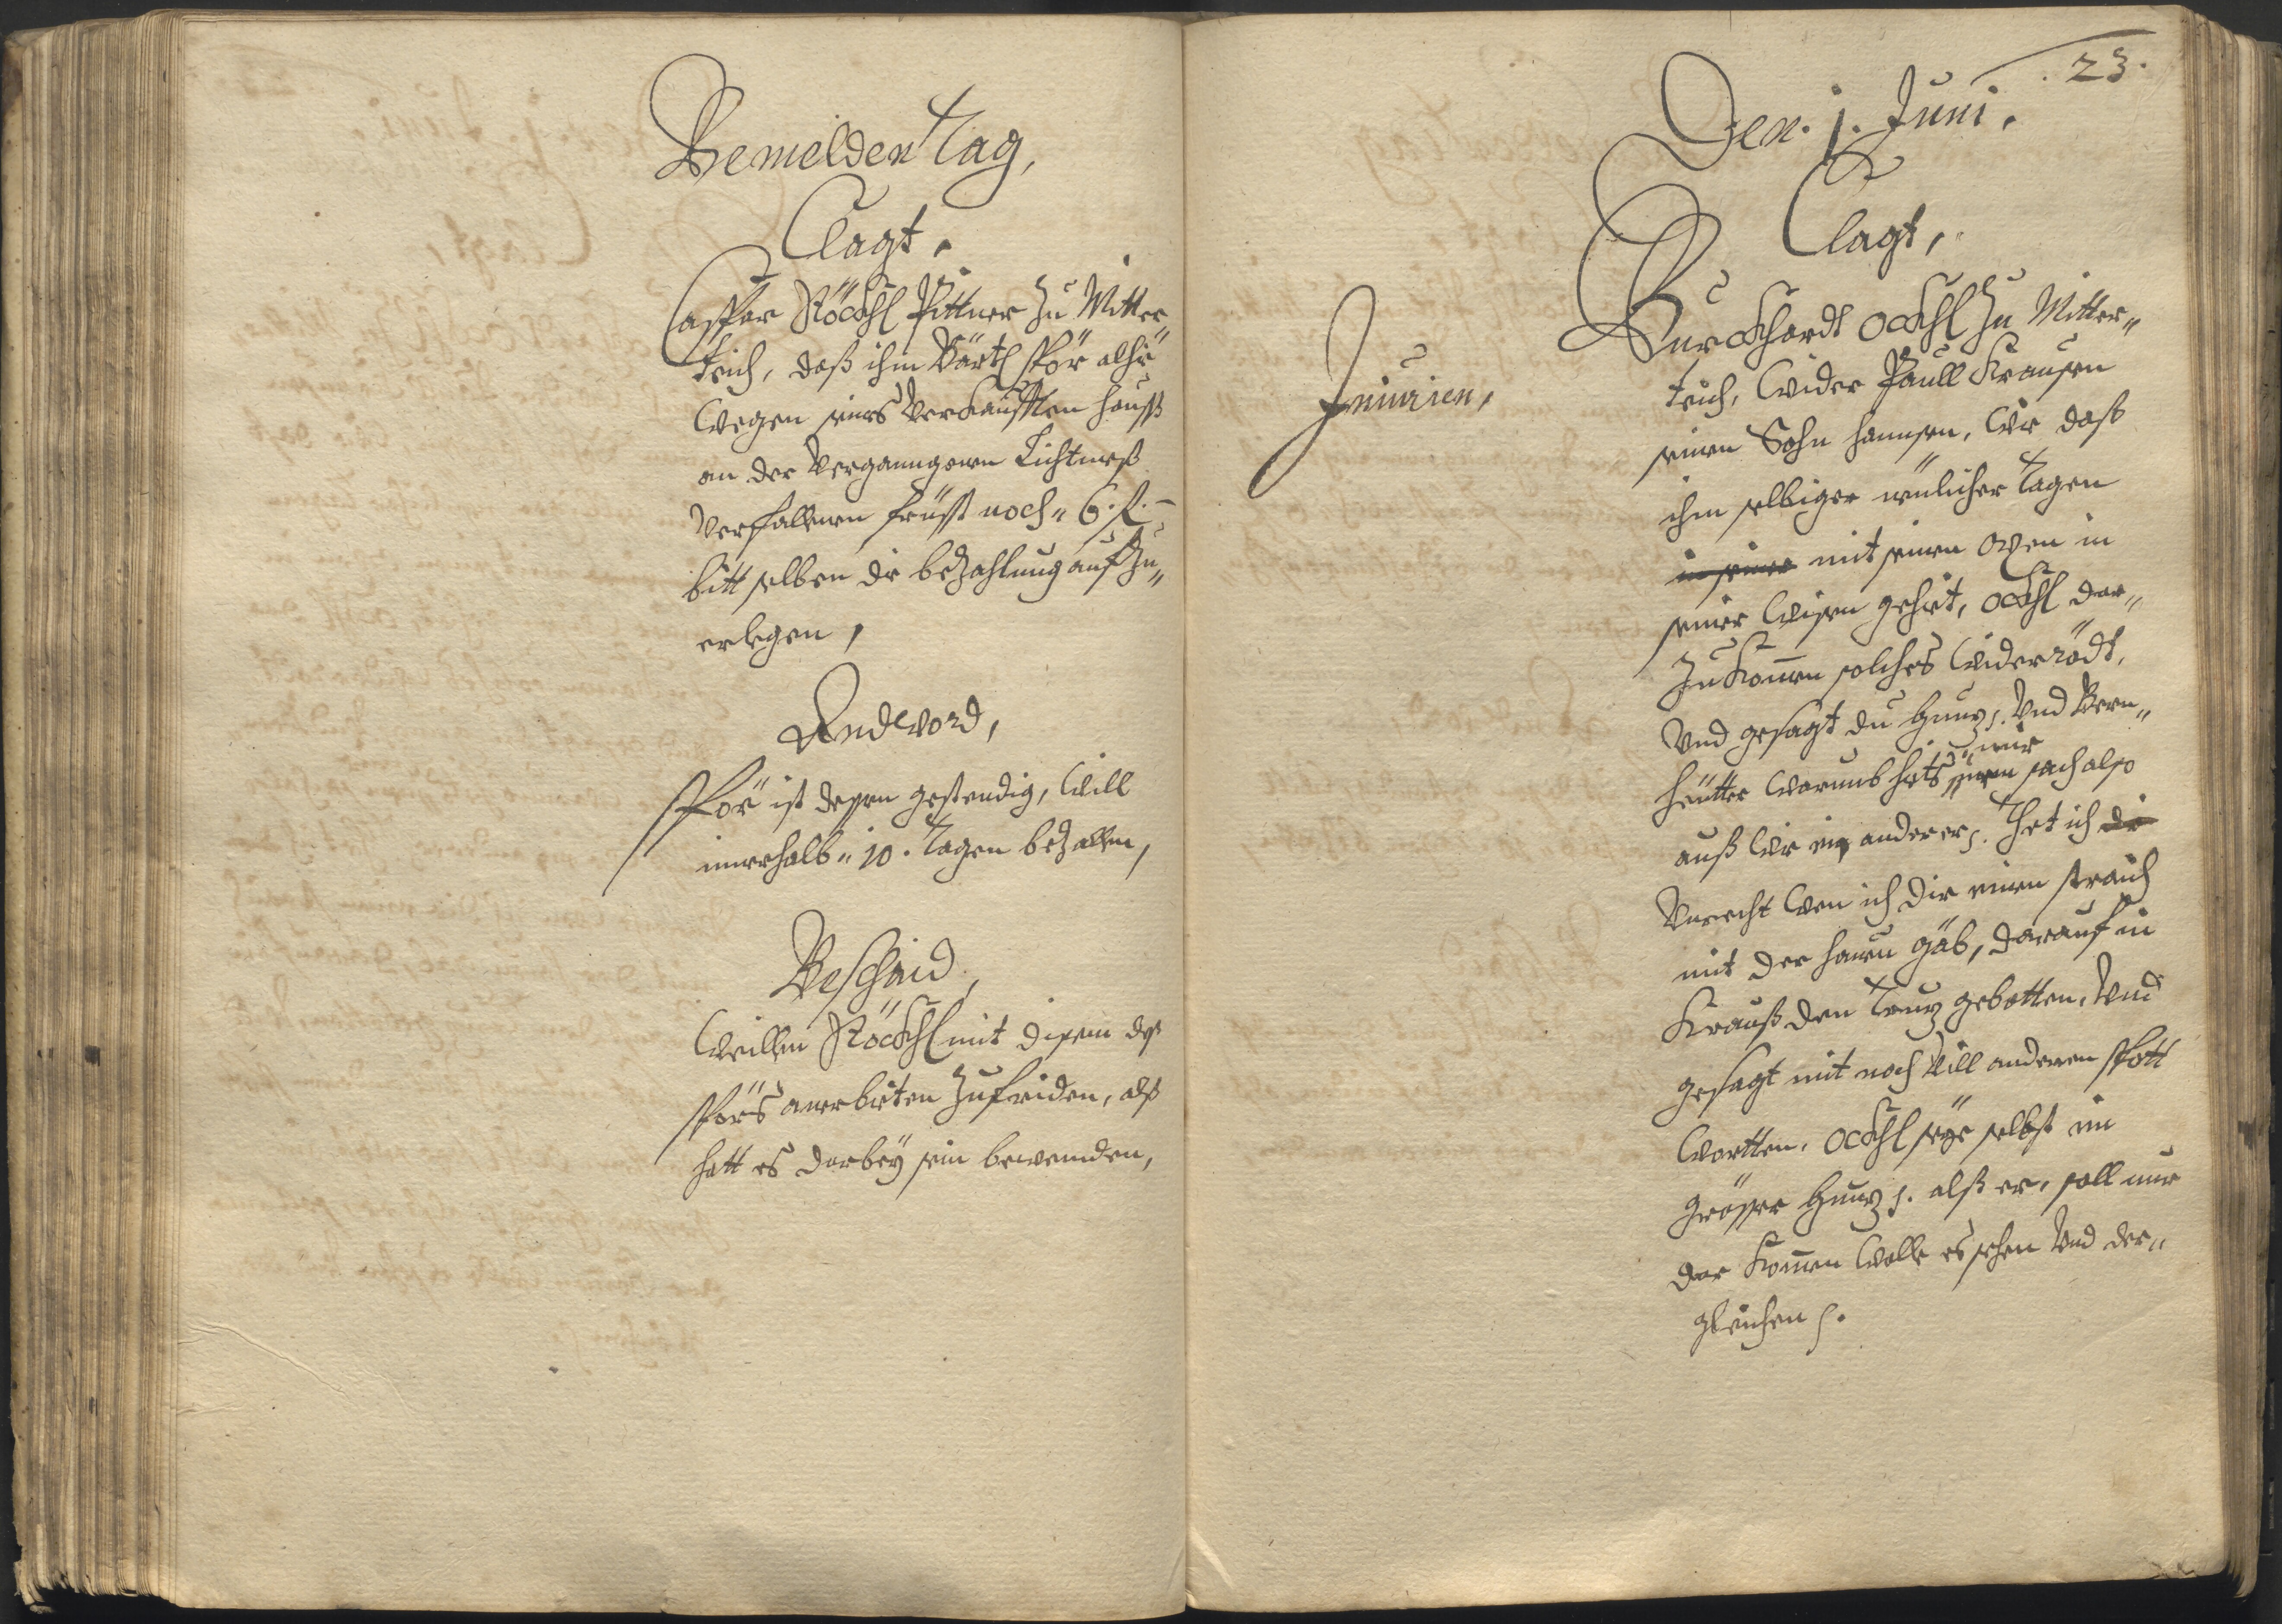 Bemelden Tag,
Clagt,
Casper Röckhl Pittner zu Mitter„
teich, daß ihm Bärtl Spör alhie
wegen seines verkaufften hauß
an der vergangenen Lichtmeß
verfallenen frist noch „ 6. f. –
bitt selben die bezahlung aufzu„
erlegen,
Andtword,
Spör ist dessen gestendig, will
innerhalb „ 10. Tagen bezallen,
Beschaid,
Weillen Röckhl mit disem deß
Spörs anerbieten zufriden, alß
hatt es darbey sein bewenden,
. 23.
Den. 1. Juni.
Clagt,
Injurien,
Burckhardt Öckhl zu Mitter„
teich, wider Paull Krausen
seinen Sohn hannsen, wie daß
ihm selbiger neulicher Tagen
in seiner mit seinen Oxen in
seiner wisen gehiet, Öckhl dar„
zu kommen solches widerrödt,
vnd gesagt du hundt s. vnd Bern„
heütter warumb hiets mir
einen sach also
auß wie ein anderer s. Thet ich die
vnrecht wen ich dir einen straich
mit der hauen gäb, darauf in
Krauß den Truz gebotten, vnd
gesagt mit noch vill anderen spott
wortten, Öckhl seye selbst ein
grösser hundt s. alß er, soll nur
her kommen wolle es sehen vnd der„
gleichen s.